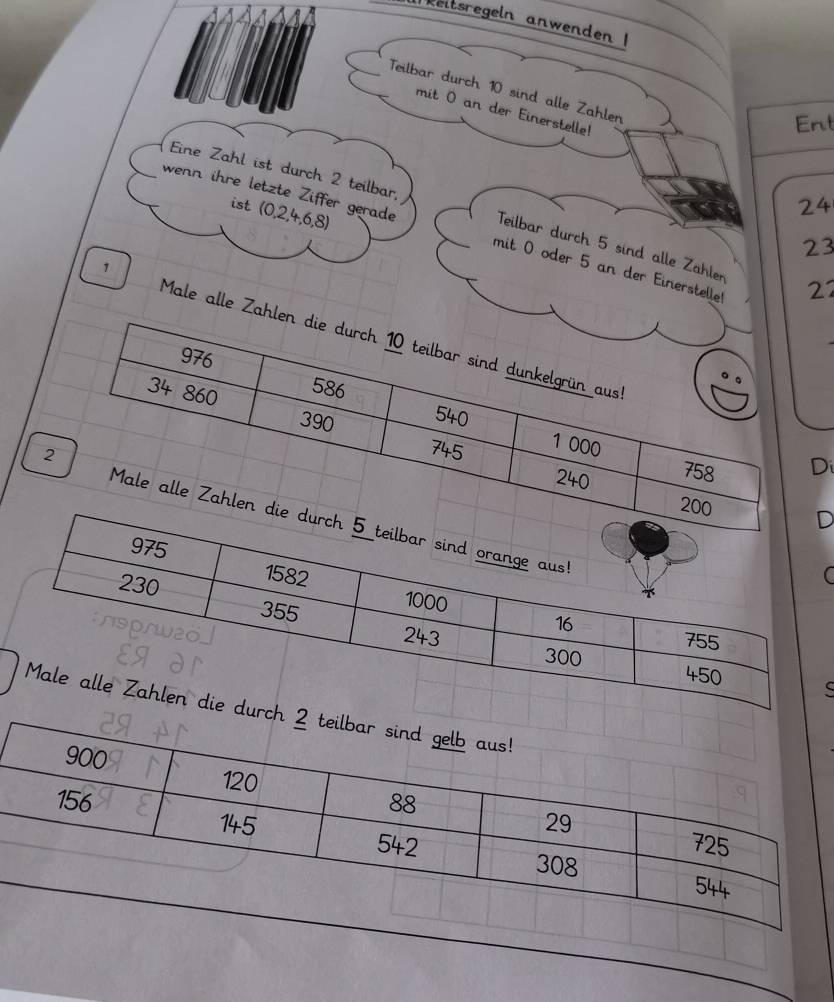 anwenden!
Teilbar durch 10 sind alle Zahlen
mit 0 an der Einerstelle!
Eine Zahl ist durch 2 teilbar,
wenn ihre letzte Ziffer gerade
ist (0,2,4,6,8)
Teilbar durch 5 sind alle Zahlen
mit 0 oder 5 an der Einerstelle!
1
Male alle Zahlen die durch 10 teilbar sind dunkelgrün aus!
976 586 540 1 000 758
34 860 390 745 240 200
2
Male alle Zahlen die durch 5 teilbar sind orange aus!
975 1582 1000 16 755
230 355 243 300 450
Male alle Zahlen die durch 2 teilbar sind gelb aus!
900 120 88 29 725
156 145 542 308 544